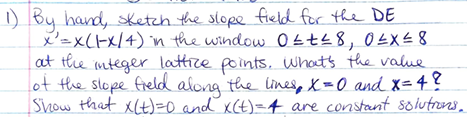 1) By hand, sketch the slope field for the DE
x'=x(1-x/4) in the window 0≤t≤8, 0≤x≤8
at the integer lattice points. What's the value
of the slope field along the lines, x=0 and x=4?
Show that x(t)=0 and x(t)=4 are constant solutions.